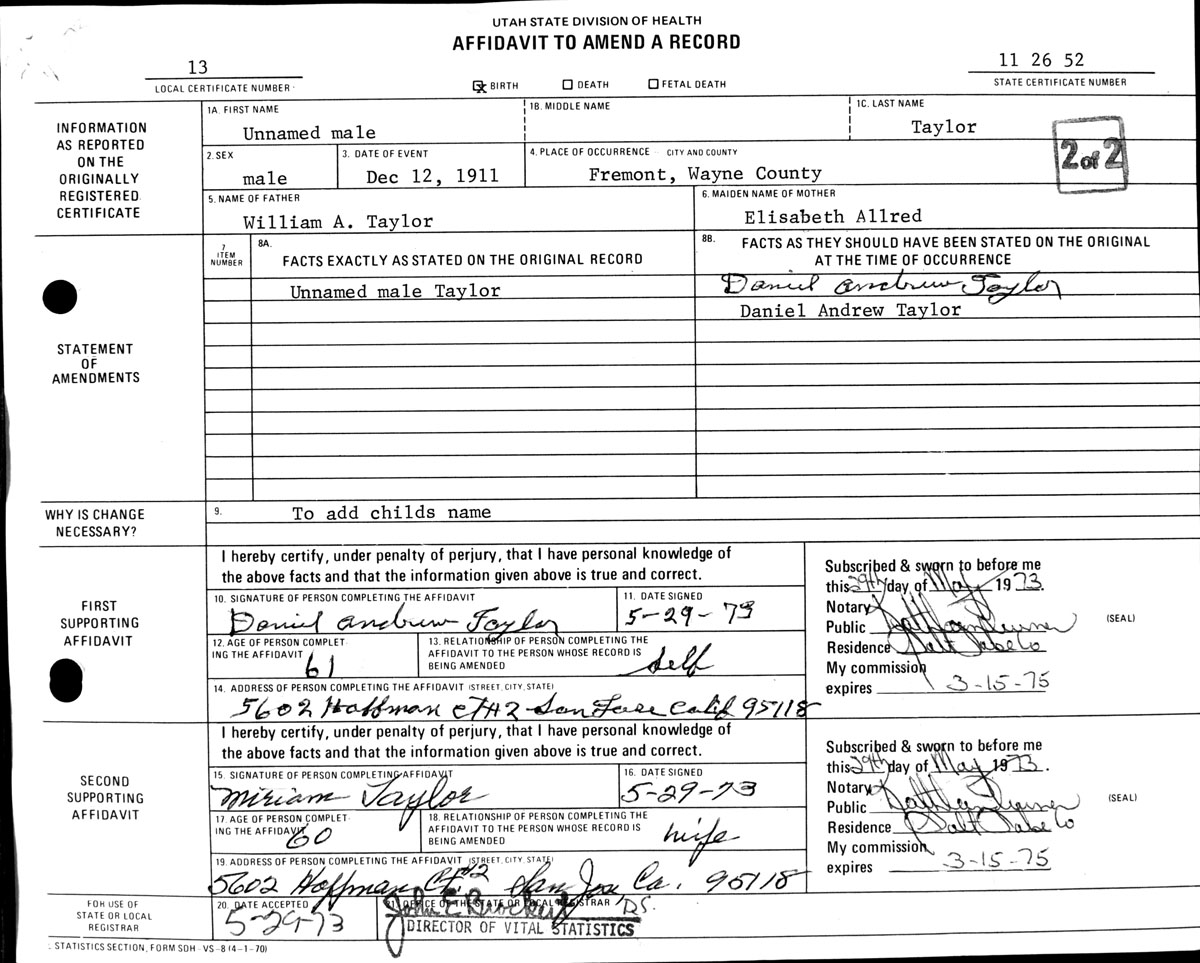 UTAH STATE DIVISION OF HEALTH
AFFIDAVIT TO AMEND A RECORD
13
LOCAL CERTIFICATE NUMBER
☒ BIRTH ☐ DEATH ☐ FETAL DEATH
11 26 52
STATE CERTIFICATE NUMBER
INFORMATION
AS REPORTED
ON THE
ORIGINALLY
REGISTERED
CERTIFICATE
1A. FIRST NAME
Unnamed male
1B. MIDDLE NAME
1C. LAST NAME
Taylor
2 of 2
2. SEX
male
3. DATE OF EVENT
Dec 12, 1911
4. PLACE OF OCCURRENCE - CITY AND COUNTY
Fremont, Wayne County
5. NAME OF FATHER
William A. Taylor
6. MAIDEN NAME OF MOTHER
Elisabeth Allred
STATEMENT
OF
AMENDMENTS
7
ITEM
NUMBER
8A.
FACTS EXACTLY AS STATED ON THE ORIGINAL RECORD
8B. FACTS AS THEY SHOULD HAVE BEEN STATED ON THE ORIGINAL
AT THE TIME OF OCCURRENCE
Unnamed male Taylor
Daniel Andrew Taylor
Daniel Andrew Taylor
WHY IS CHANGE
NECESSARY?
9. To add childs name
FIRST
SUPPORTING
AFFIDAVIT
I hereby certify, under penalty of perjury, that I have personal knowledge of
the above facts and that the information given above is true and correct.
10. SIGNATURE OF PERSON COMPLETING THE AFFIDAVIT
Daniel Andrew Taylor
11. DATE SIGNED
5-29-73
12. AGE OF PERSON COMPLET-
ING THE AFFIDAVIT
61
13. RELATIONSHIP OF PERSON COMPLETING THE
AFFIDAVIT TO THE PERSON WHOSE RECORD IS
BEING AMENDED
Self
14. ADDRESS OF PERSON COMPLETING THE AFFIDAVIT (STREET, CITY, STATE)
5602 Hoffman CT #2 San Jose Calif 95118
Subscribed & sworn to before me
this 29th day of May 1973.
Notary
Public
Residence Salt Lake Co
My commission
expires 3-15-75
(SEAL)
SECOND
SUPPORTING
AFFIDAVIT
I hereby certify, under penalty of perjury, that I have personal knowledge of
the above facts and that the information given above is true and correct.
15. SIGNATURE OF PERSON COMPLETING AFFIDAVIT
Miriam Taylor
16. DATE SIGNED
5-29-73
17. AGE OF PERSON COMPLET-
ING THE AFFIDAVIT
60
18. RELATIONSHIP OF PERSON COMPLETING THE
AFFIDAVIT TO THE PERSON WHOSE RECORD IS
BEING AMENDED
wife
19. ADDRESS OF PERSON COMPLETING THE AFFIDAVIT (STREET, CITY, STATE)
5602 Hoffman Ct. #2 San Jose Ca. 95118
Subscribed & sworn to before me
this 29th day of May 1973.
Notary
Public
Residence Salt Lake Co
My commission
expires 3-15-75
(SEAL)
FOR USE OF
STATE OR LOCAL
REGISTRAR
20. DATE ACCEPTED
5-29-73
21. OFFICE OF THE STATE OR LOCAL REGISTRAR
John E. D.S.
DIRECTOR OF VITAL STATISTICS
STATISTICS SECTION, FORM SDH - VS - 8 (4-1-70)